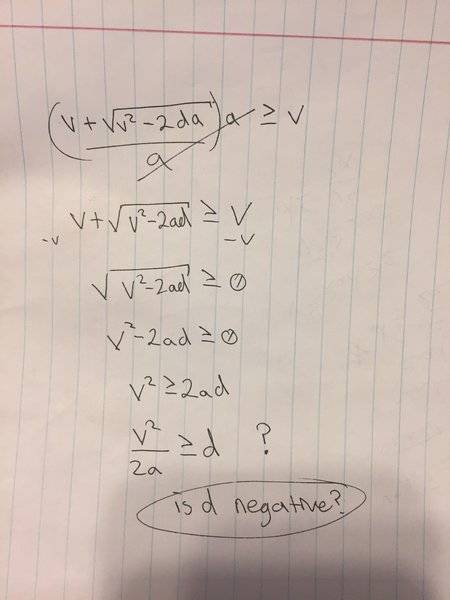 (v + √v² - 2da / a) a ≥ v
v + √v² - 2ad ≥ v
-v -v
√v² - 2ad ≥ 0
v² - 2ad ≥ 0
v² ≥ 2ad
v² / 2a ≥ d ?
is d negative?